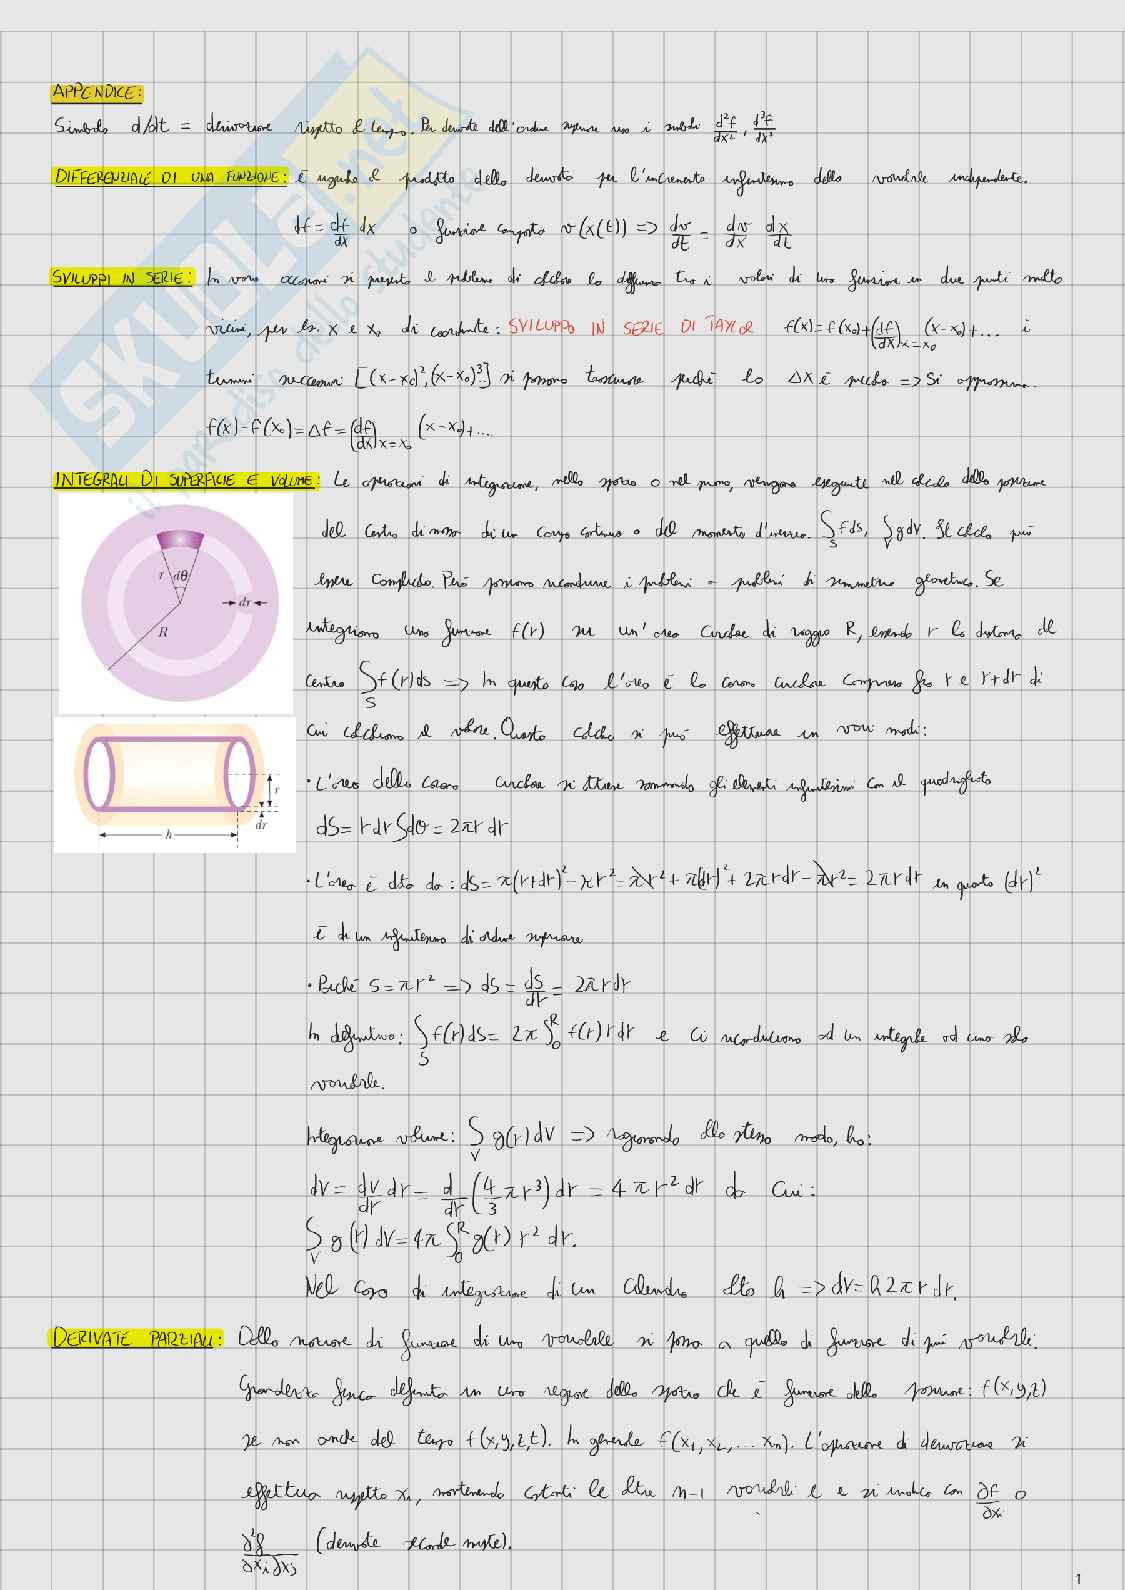 APPENDICE:
Simbolo d/dt = derivazione rispetto al tempo. Per derivate dell'ordine superiore uso i simboli d²f/dx², d³f/dx³
DIFFERENZIALE DI UNA FUNZIONE: è uguale al prodotto della derivata per l'incremento infinitesimo della variabile indipendente.
df = df/dx dx o funzione composta v(x(t)) => dv/dt = dv/dx dx/dt
SVILUPPI IN SERIE: In varie occasioni si presenta il problema di calcolare la differenza tra i valori di una funzione in due punti molto
vicini, per es. x e x₀ di coordinate: SVILUPPO IN SERIE DI TAYLOR f(x) = f(x₀) + (df/dx)x=x₀ (x-x₀) + ... i
termini successivi [(x-x₀)², (x-x₀)³..] si possono trascurare perché la Δx è piccola => Si approssima.
f(x) - f(x₀) = Δf = (df/dx)x=x₀ (x-x₀) + ...
INTEGRALI DI SUPERFICIE E VOLUME: Le operazioni di integrazione, nello spazio o nel piano, vengono eseguite nel calcolo della posizione
del centro di massa di un corpo continuo o del momento d'inerzia. ∫S f ds, ∫V g dV. Il calcolo può
essere complicato. Però possono ricondurre i problemi a problemi di simmetria geometrica. Se
integriamo una funzione f(r) su un'area circolare di raggio R, essendo r la distanza dal
centro ∫S f(r) ds => In questo caso l'area è la corona circolare compresa fra r e r+dr di
cui calcoliamo il valore. Questo calcolo si può effettuare in vari modi:
• L'area della corona circolare si ottiene sommando gli elementi infinitesimi con il
dS = r dr ∫dθ = 2πr dr
• L'area è data da: dS = π(r+dr)² - πr² = πr² + π(dr)² + 2πrdr - πr² = 2πrdr in quanto (dr)²
è di un infinitesimo di ordine superiore
• Poiché S = πr² => dS = dS/dr = 2πrdr
In definitiva: ∫S f(r) dS = 2π ∫₀ᴿ f(r) r dr e ci riconduciamo ad un integrale ad una sola
variabile.
Integrazione volume: ∫V g(r) dV => ragionando allo stesso modo, ho:
dV = dV/dr dr = d/dr (4/3 πr³) dr = 4πr² dr da cui:
∫V g(r) dV = 4π ∫₀ᴿ g(r) r² dr.
Nel caso di integrazione di un cilindro alto h => dV = h2πr dr.
DERIVATE PARZIALI: Dalla nozione di funzione di una variabile si passa a quella di funzione di più variabili.
Grandezza fisica definita in una regione dello spazio che è funzione della posizione: f(x,y,z)
se non anche del tempo f(x,y,z,t). In generale f(x₁,x₂,...xₙ). L'operazione di derivazione si
effettua rispetto xᵢ, mantenendo costanti le altre n-1 variabili e e si indica con ∂f/∂xᵢ o
∂²f/∂xᵢ∂xⱼ (derivate seconde miste).
r
dθ
dr
R
r
dr
h
SKUOLA.net
il paradiso dello studente
1